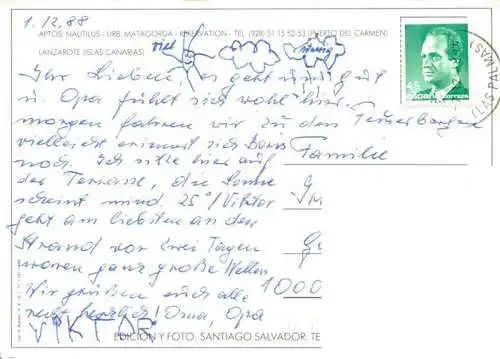 1.12.88
APTOS. NAUTILUS - URB. MATAGORDA - RESERVATION - TEL. (928) 51 15 52-53 (PUERTO DEL CARMEN)
LANZAROTE (ISLAS CANARIAS)
Ihr Lieben, es geht uns gut
u. Opa fühlt sich wohl hier.
morgen fahren wir zu den Feuerbergen
vielleicht erinnert sich Boris
noch. Ich sitze hier auf
der Terrasse, die Sonne
scheint mind. 25° / Viktor
geht am liebsten an den
Strand vor zwei Tagen
waren ganz große Wellen
Wir grüßen euch alle
recht herzlich! Oma, Opa
VIKTOR
Familie
1000
45
ESPAÑA CORREOS
(LAS PALMAS)
EDICION Y FOTO: SANTIAGO SALVADOR. TE